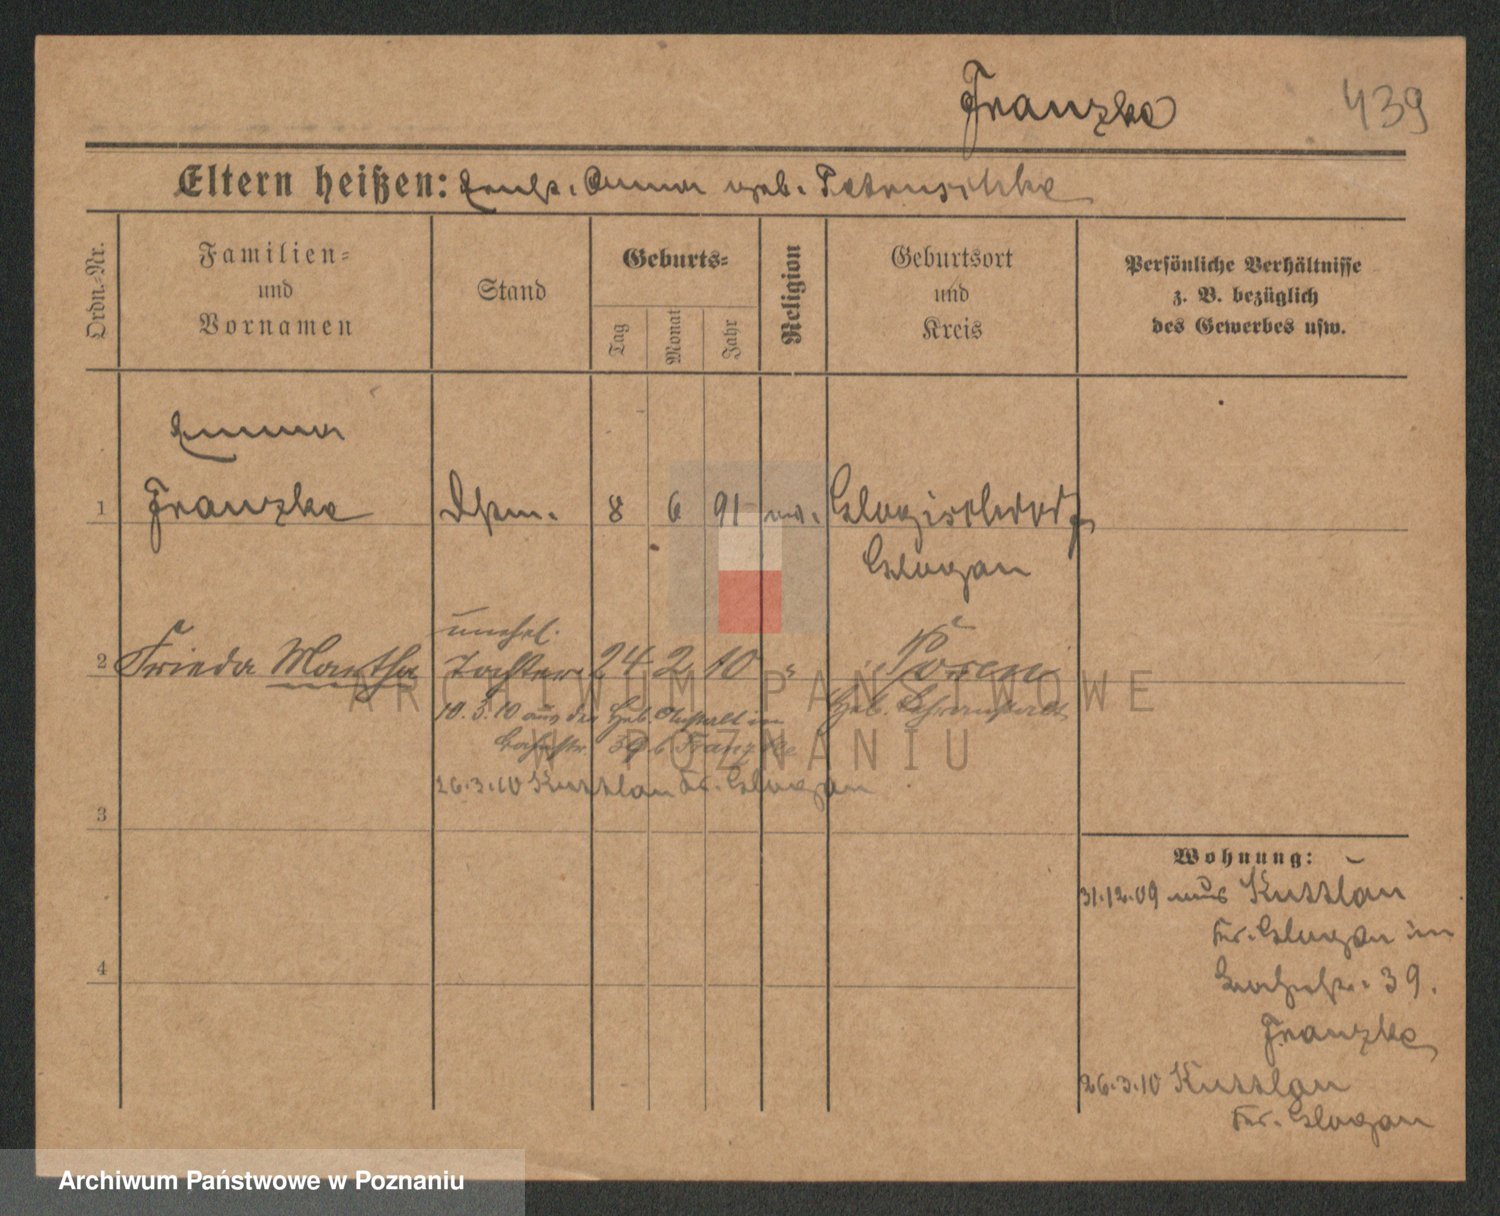 Franzke 439
Eltern heißen: Anna geb. Petruschke
Ordn.-Nr.
Familien-
und
Vornamen
Stand
Geburts-
Tag
Monat
Jahr
Religion
Geburtsort
und
Kreis
Persönliche Verhältnisse
z. B. bezüglich
des Gewerbes usw.
Emma
1 Franzke 8 6 91 ev.
Glogau
unehl.
2 Frieda Martha Tochter 24 2 10 " Posen
10.3.10 aus der Heb. Anstalt in Heb. Lehranstalt
39 b Franzke
26.3.10 Kuttlau Kr. Glogau
3
4
Wohnung:
31.12.09 aus Kuttlau
Kr. Glogau in
39.
Franzke
26.3.10 Kuttlau
Kr. Glogau
ARCHIWUM PAŃSTWOWE
W POZNANIU
Archiwum Państwowe w Poznaniu